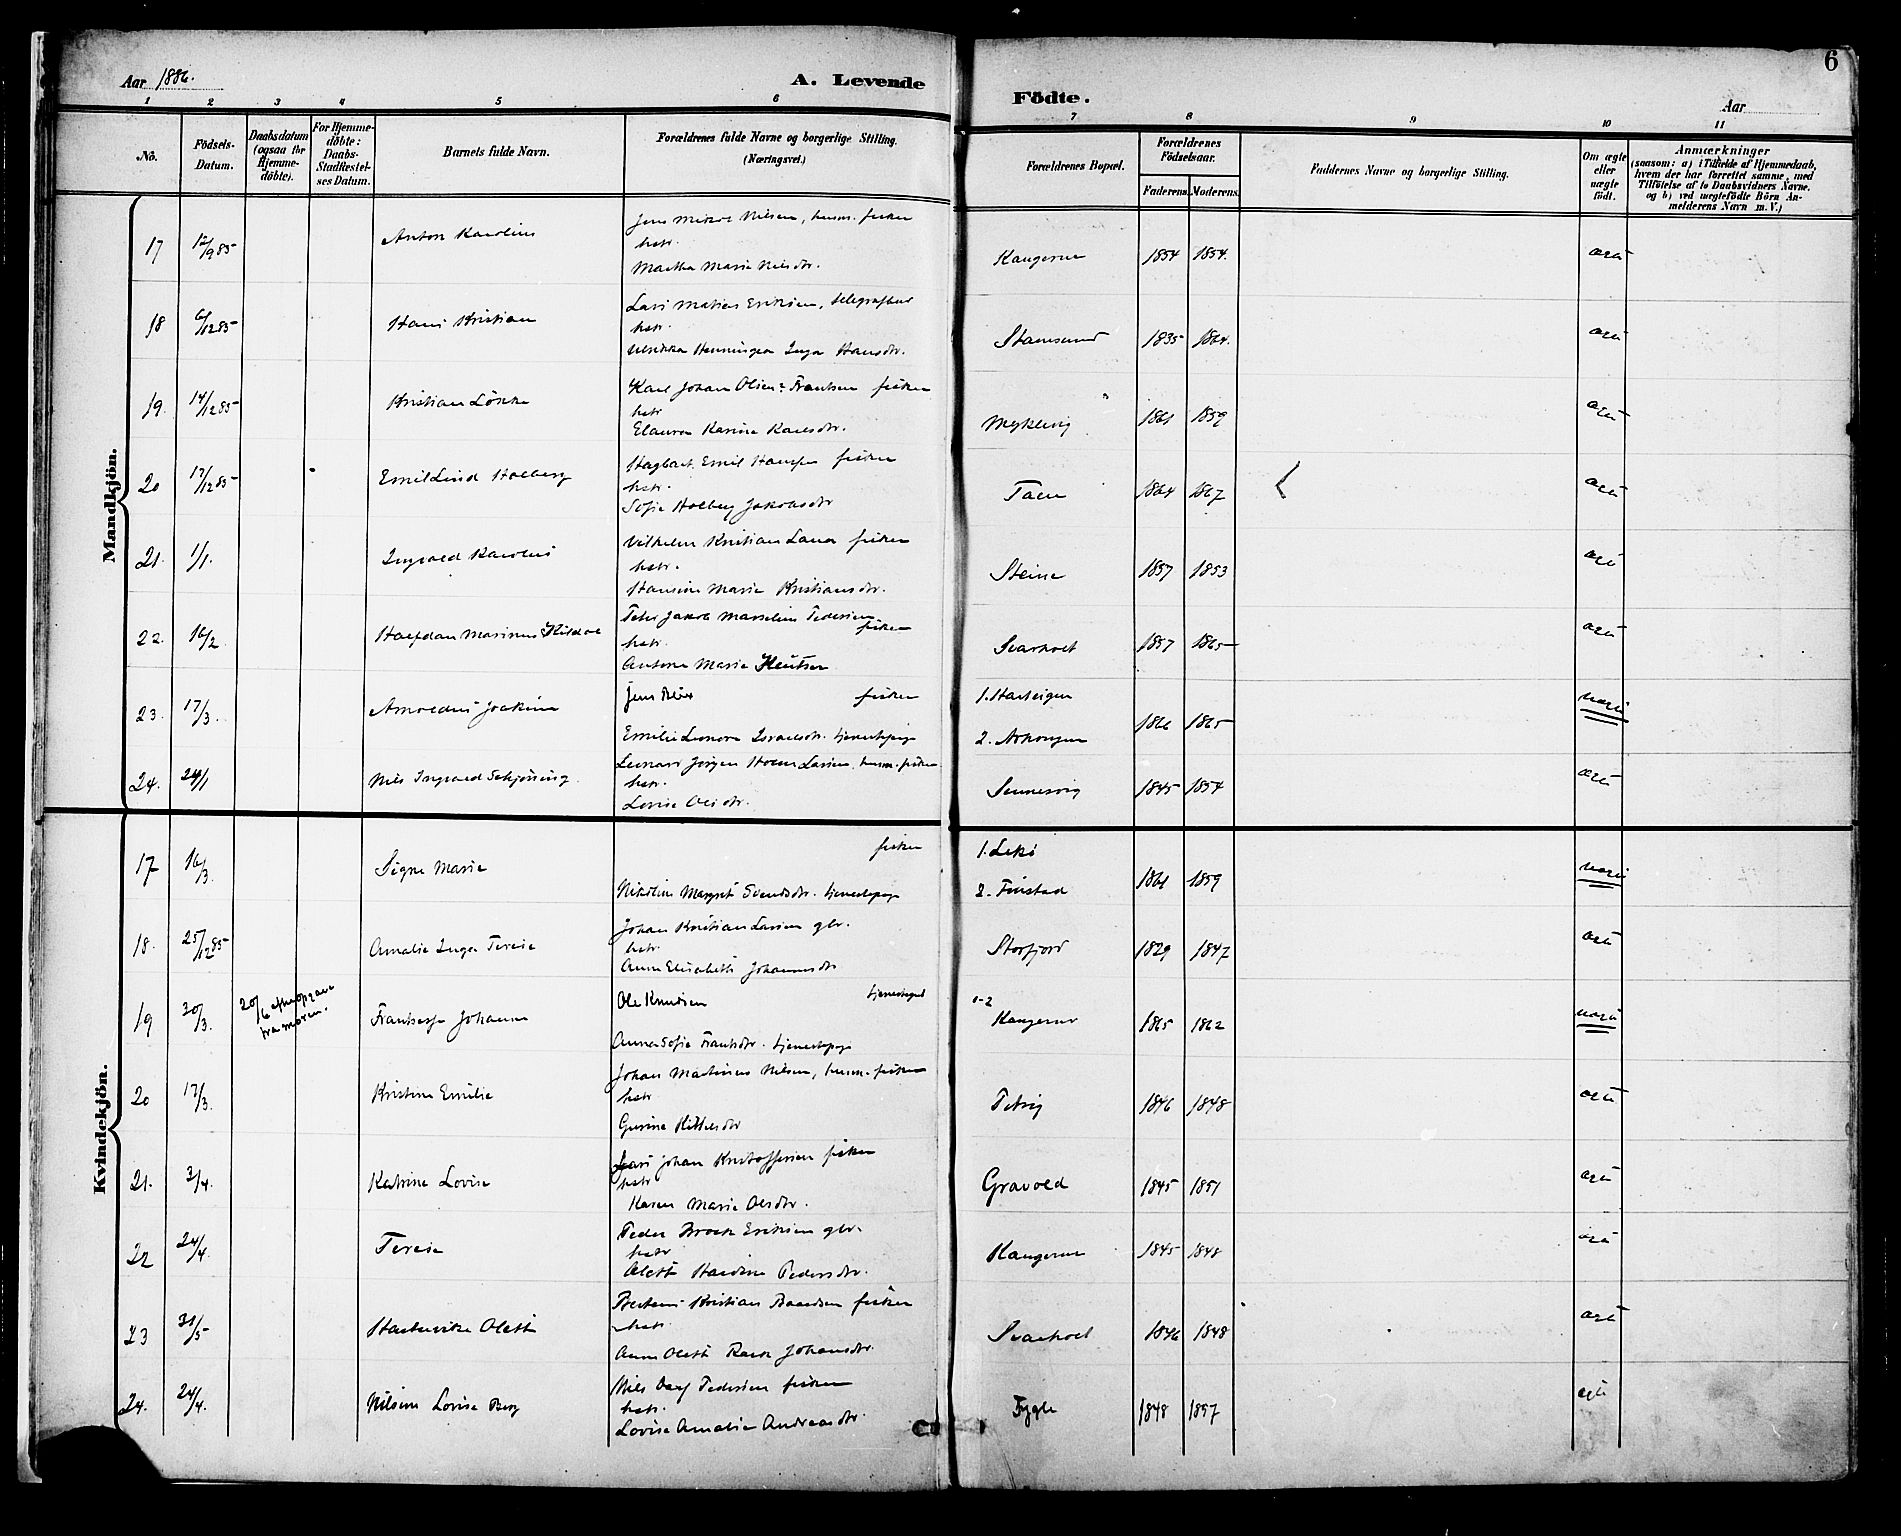 Aar 1886.
A. Levende
Födte.
Aar
6
1 2 3 4 5 6 7 8 9 10 11
No.
Födsels-Datum.
Daabsdatum (ogsaa for Hjemme-döbte).
For Hjemme-döbte: Daabs-Stadfæstel-ses Datum.
Barnets fulde Navn.
Forældrenes fulde Navne og borgerlige Stilling. (Næringsvei.)
Forældrenes Bopæl.
Forældrenes Födselsaar.
Faderens. Moderens.
Faddernes Navne og borgerlige Stilling.
Om ægte eller uægte födt.
Anmærkninger (saasom: a) i Tilfælde af Hjemmedaab, hvem der har forrettet samme, med Tilföielse af to Daabsvidners Navne. og b) ved uægtefödte Börn An-melderens Navn m. V.)
Mandkjön.
17 12/9 85 Anton Karolius
Jens Mikal Nilsen, husm. fisker
hstr.
Martha Marie Nilsdtr.
1854 1854. ægte
18 6/12 85 Hans Kristian
Lars Matias Eriksen, telegrafbud
hstr.
Henningea Inga Hansdtr.
Stamsund 1835 1864. ægte
19. 14/12 85 Kristian Lökke
Karl Johan Olsen Frantsen fisker
hstr
Karine Karlsdtr.
1861 1859 ægte
20 17/12 85 Emil Lind Holberg
Hagbart Emil Hansen fisker
hstr.
Sofie Holberg Jakobsdtr
1864 1867 ægte
21. 1/1. Ingvald Karolius
Vilhelm Kristian fisker
hstr.
Hansine Marie Kristiansdtr.
Steine 1857 1853 ægte
22. 16/2 Halfdan Marinus
Peter Jakob Marselius Pedersen
fisker
hstr.
Antone Marie
Svarholt 1857 1865 ægte
23. 17/3. Arnoldus Joakim
Jens fisker
Emilie Leonora Israelsdtr. tjenestepige
1.
2.
1866 1865 uægte
24. 24/1 Nils Ingvald Schjöning
Leonard Jörgen Larsen, husm. fisker
hstr.
Lovise Olsdtr.
Sennesvig 1845 1854 ægte
Kvindekjön.
17 16/3. Signe Marie
fisker
Nikoline Margret tjenestepige
1. Lekö
2. Finstad
1861 1859 uægte
18. 25/12 85 Amalie Inga Terese
Johan Kristian Larsen gbr.
hstr.
Anne Elisabeth Johannesdtr
Storfjord 1829 1847 ægte
19 30/3. 20/6 efter opgave fra moren. Johanne
Ole Knudsen tjenestegut
Anna Sofie Frantsdtr. tjenestepige
1-2
1865 1862 uægte
20 17/3. Kristine Emilie
Johan Martinus Nilsen, husm. fisker
hstr
Gurine
Petvig 1846 1848 ægte
21. 3/4. Katrine Lovise
Lars Johan Kristoffersen fisker
hstr
Karen Marie Olsdtr.
Gravold 1845 1851 ægte
22 24/4. Terese
Peder Brock Eriksen gbr.
hstr
Olette Pedersdtr.
1845 1848 ægte
23 31/5 Hartvikke Olette
Kristian Baardsen fisker
hstr.
Anne Olette Johansdtr.
Svarholt 1846 1848 ægte
24. 24/4. Nilsine Lovise Berg
Nils Olaf Pedersen fisker
hstr.
Lovise Amalie Andreasdtr.
Fygle 1848 1857 ægte